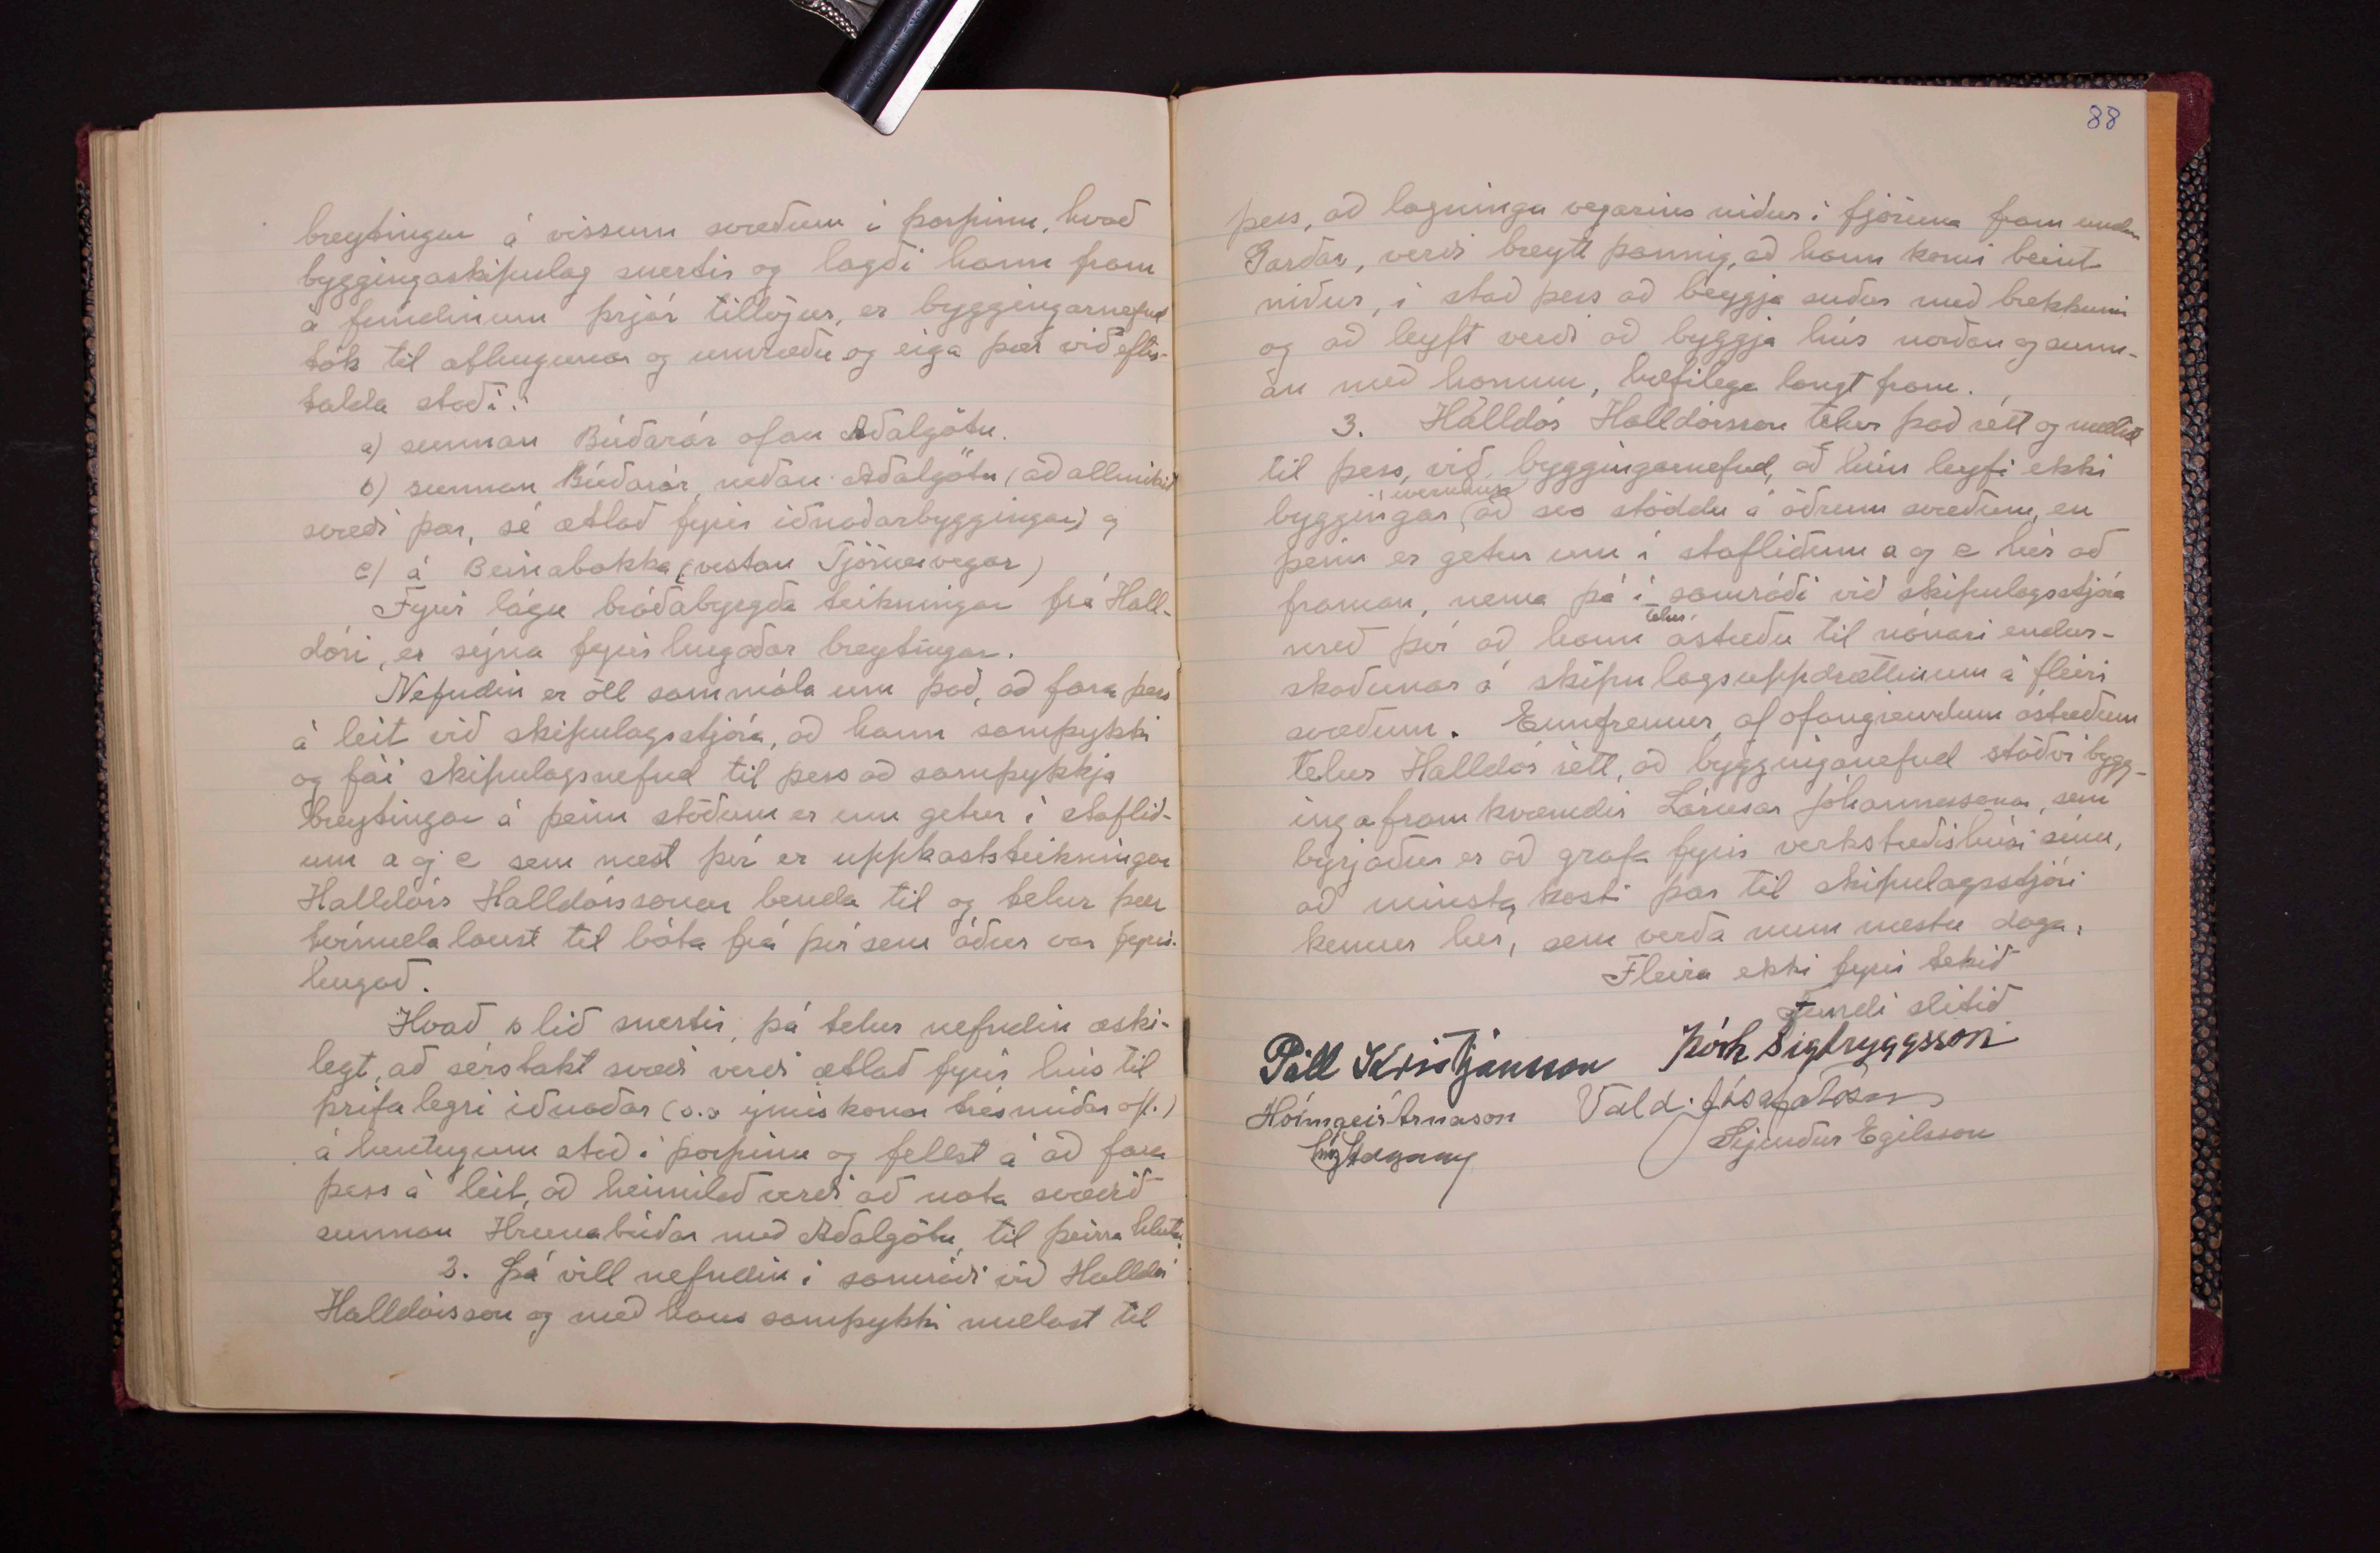 breytingar á vissum svæðum í þorpinu, hvað
byggingaskipulag snertir og lagði hann fram
á fundinum þrjár tillögur, er byggingarnefnd
tók til athugunar og umræðu og eiga þær við eftir-
talda staði:
a) sunnan Búðarár ofan Aðalgötu.
b) sunnan Búðarár, neðan Aðalgötu (að allmikið
svæði þar, sé ætlað fyrir iðnaðarbyggingar) og
c) á Beinabakka (vestan Tjörnesvegar)
Fyrir lágu bráðabyrgða teikningar frá Hall-
dóri, er sýna fyrirhugaðar breytingar.
Nefndin er öll sammála um það, að fara þess
á leit við skipulagsstjóra, að hann samþykki
og fái skipulagsnefnd til þess að samþykkja
breytingar á þeim stöðum er um getur í staflið-
um a og c sem næst því er uppkaststeikningar
Halldórs Halldórssonar benda til og telur þær
tvímælalaust til bóta frá því sem áður var fyrir-
hugað.
Hvað b lið snertir, þá telur nefndin æski-
legt, að sérstakt svæði verði ætlað fyrir hús til
þrifalegri iðnaðar (s.s ýmiskonar trésmíðar ofl.)
á hentugum stað í þorpinu og fellst á að fara
þess á leit, að heimilað verði að nota svæðið
sunnan Hrunabúðar með Aðalgötu, til þeirra hluta.
2. Þá vill nefndin í samráði við Halldór
Halldórsson og með hans samþykki mælast til
88
þess, að lagningu vegarins niður í fjöruna fram undan
Garðar, verði breytt þannig, að hann komi beint
niður, í stað þess að beygja suður með brekkunni
og að leyft verði að byggja hús norðan og sunn-
an með honum, hæfilega langt fram.
3. Halldór Halldórsson telur það rétt og mælist
til þess, við byggingarnefnd, að hún leyfi ekki
byggingar, að svo stöddu á öðrum svæðum, en
þeim er getur um í stafliðum a og c hér að
framan, nema þá í samráði við skipulagsstjóra
telur
með því að hann ástæðu til nánari endur-
skoðunar á skipulagsuppdrættinum á fleiri
svæðum. Ennfremur, af ofangreindum ástæðum
telur Halldór rétt, að bygginganefnd stöðvi bygg-
ingaframkvæmdir Lárusar Jóhannessonar, sem
byrjaður er að grafa fyrir verkstæðishúsi sínu,
að minsta kosti þar til skipulagsstjóri
kemur hér, sem verða mun næstu daga.
Fleira ekki fyrir tekið
Fundi slitið
Páll Kristjánsson Þórh Sigtryggsson
Hólmgeir Árnason Vald. Jósafatsson
Sigurður Egilsson